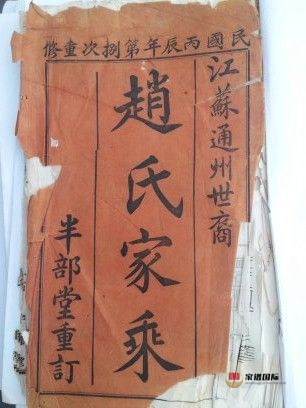 民國丙辰年第捌次重修
江蘇通州世裔
趙氏家乘
半部堂重訂
家谱国际